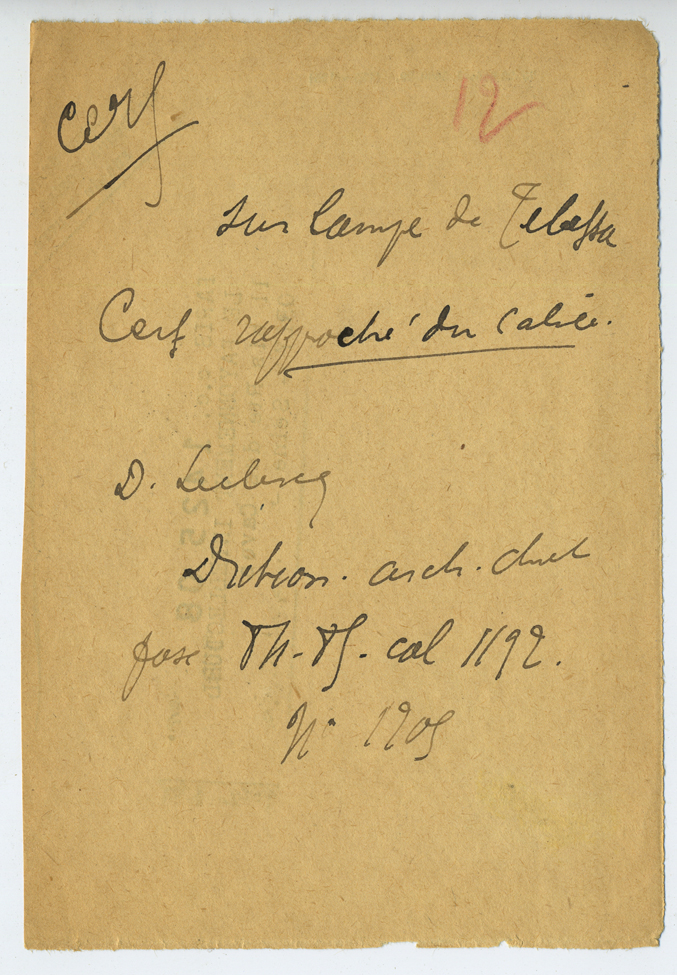 Cerf
12
sur lampe de Tebessa
Cerf rapproché du calice.
D. Leclercq
Diction. arch. chret
fasc Th-Tf. col 1192.
N° 1905